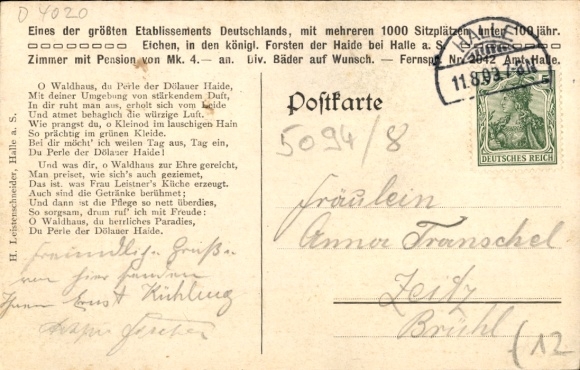 D 4020
Eines der größten Etablissements Deutschlands, mit mehreren 1000 Sitzplätzen unter 100jähr.
Eichen, in den königl. Forsten der Haide bei Halle a. S.
Zimmer mit Pension von Mk. 4.— an. Div. Bäder auf Wunsch. — Fernspr. Nr. 2042 Amt Halle.
HALLE
11.8.03.7-8N
5
DEUTSCHES REICH
H. Leistenschneider, Halle a. S.
O Waldhaus, du Perle der Dölauer Haide,
Mit deiner Umgebung von stärkendem Duft,
In dir ruht man aus, erholt sich vom Leide
Und atmet behaglich die würzige Luft.
Wie prangst du, o Kleinod im lauschigen Hain
So prächtig im grünen Kleide.
Bei dir möcht' ich weilen Tag aus, Tag ein,
Du Perle der Dölauer Haide!
Und was dir, o Waldhaus zur Ehre gereicht,
Man preiset, wie sich's auch geziemet,
Das ist. was Frau Leistner's Küche erzeugt.
Auch sind die Getränke berühmet;
Und dann ist die Pflege so nett überdies,
So sorgsam, drum ruf' ich mit Freude:
O Waldhaus, du herrliches Paradies,
Du Perle der Dölauer Haide!
Postkarte
5094/8
Fräulein
Anna Transchel
Zeitz
Brühl
(12
Freundliche Grüße
von hier senden
Ihnen Ernst Kühling